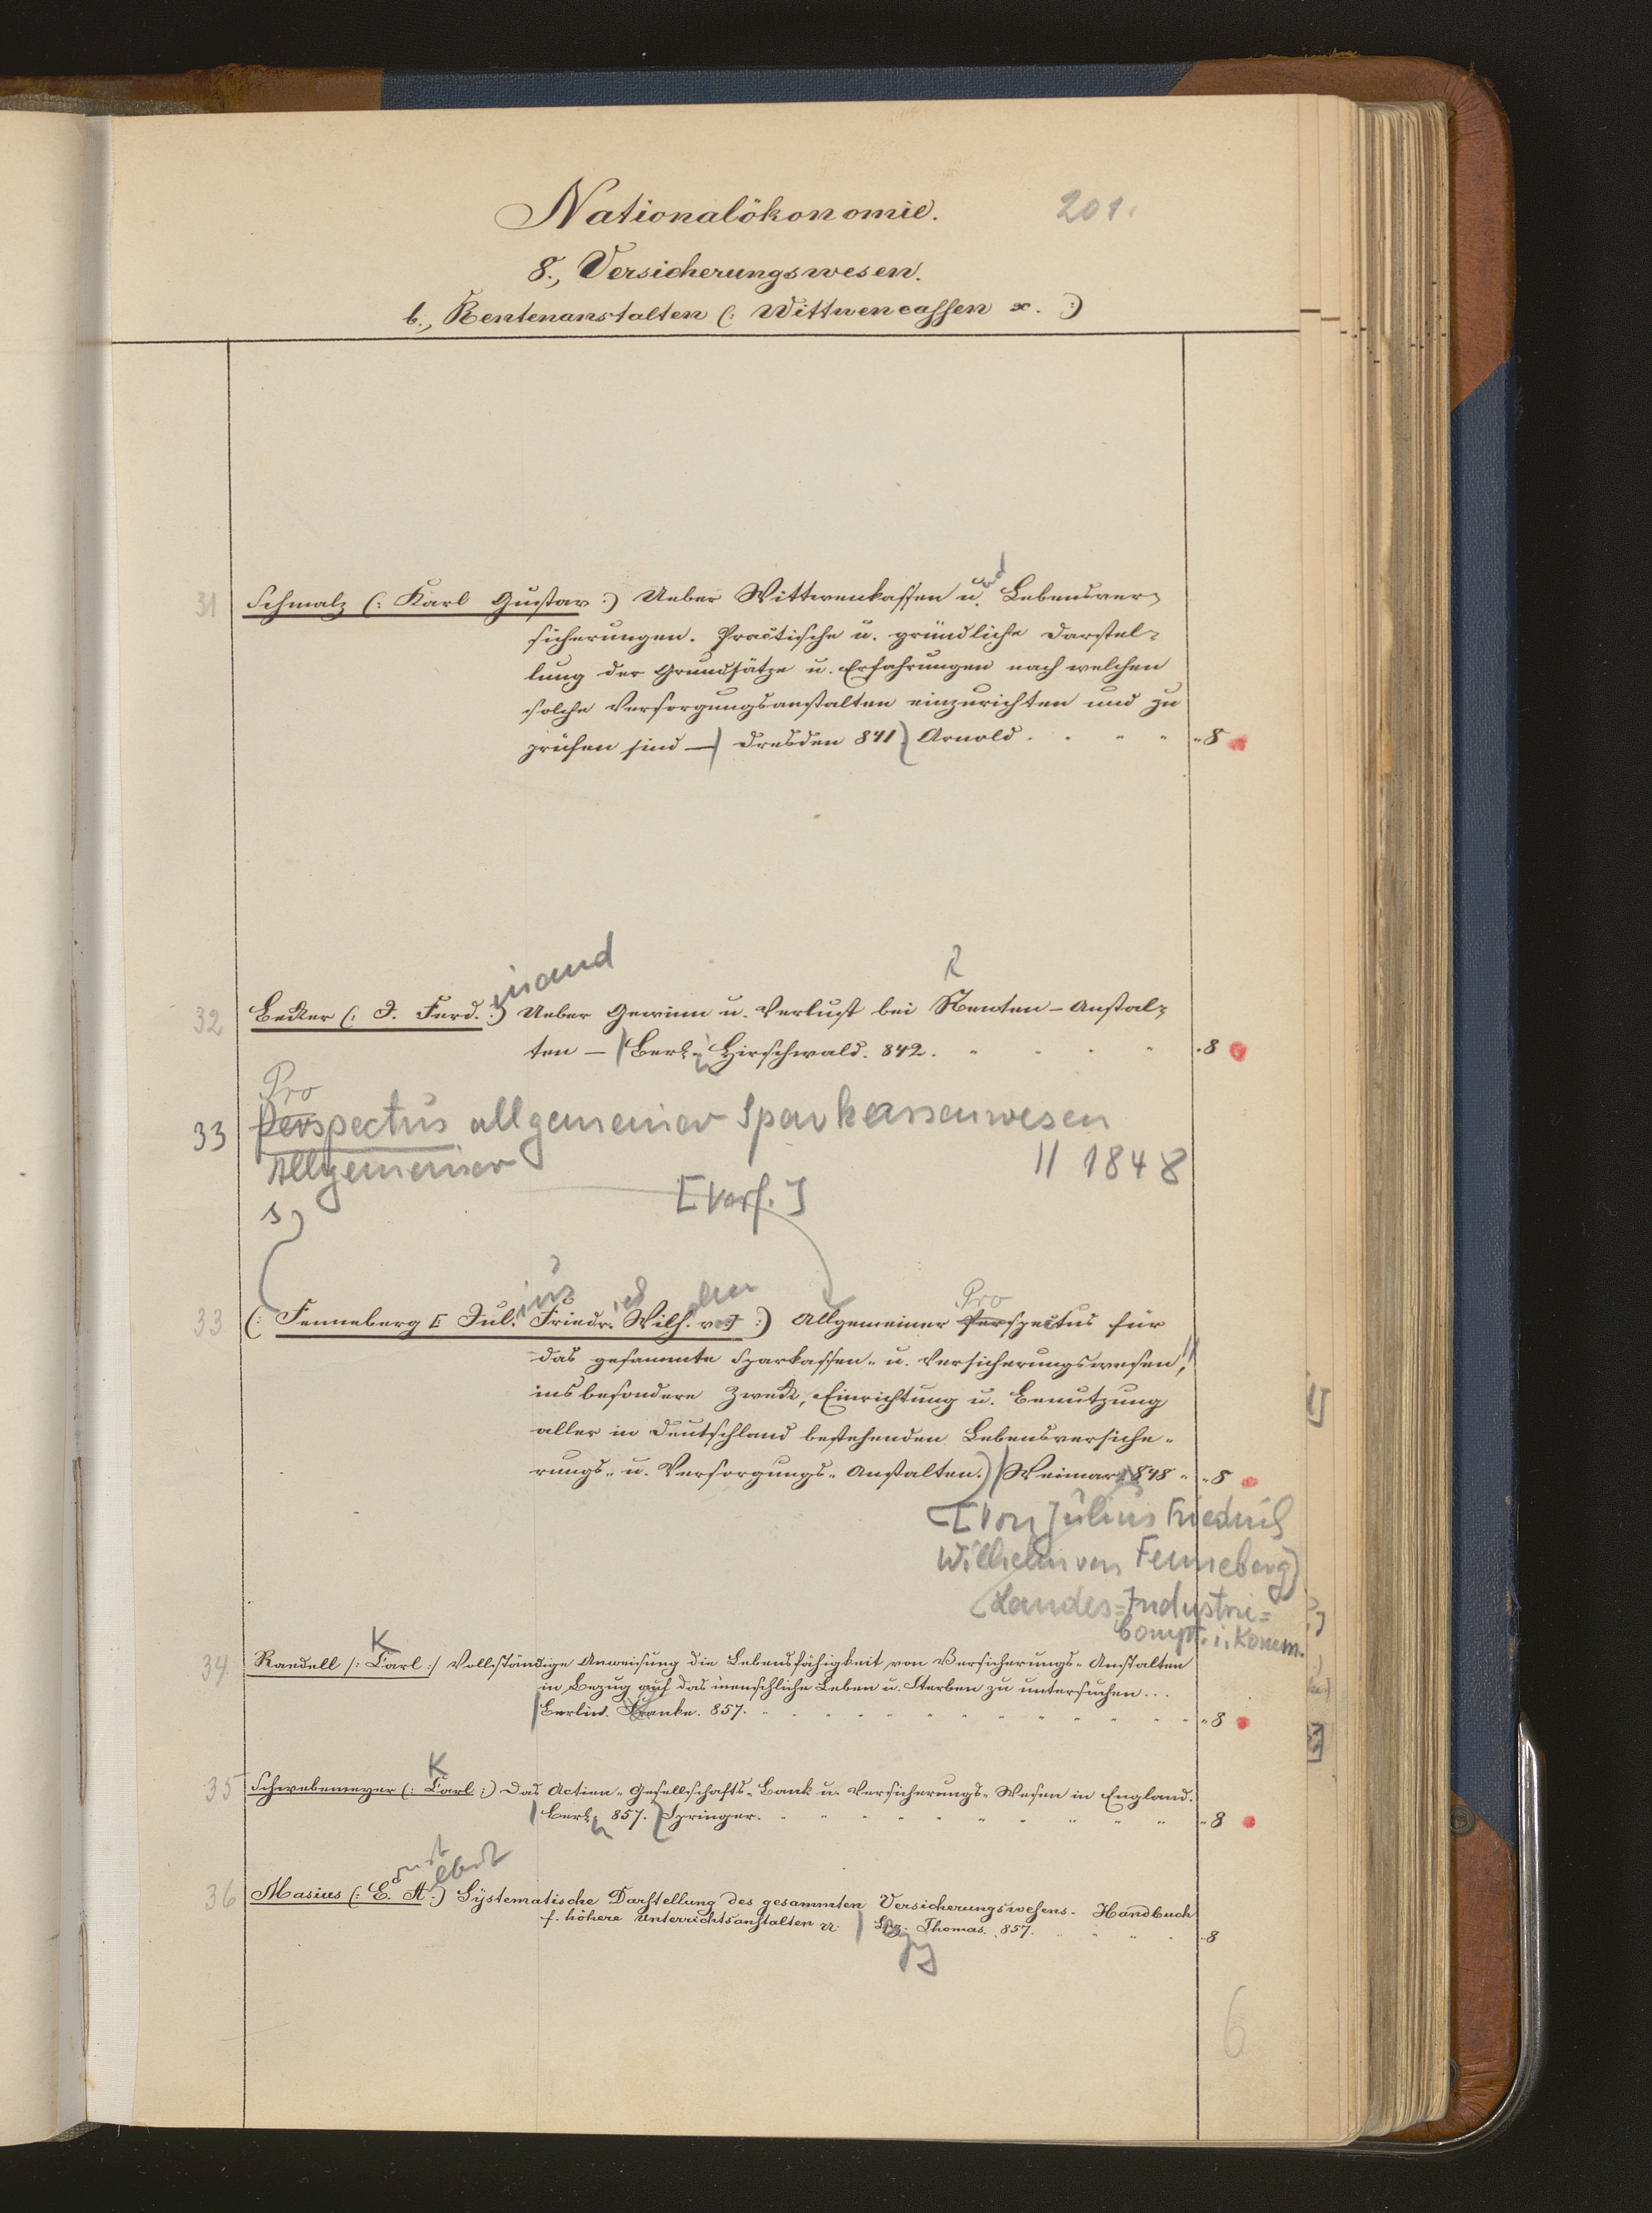 Nationalökonomie. 201.
8., Versicherungswesen.
b., Rentenanstalten (: Wittwencassen :)
31 Schmalz (: Karl Gustav :) Ueber Wittwenkassen und Lebensver-
sicherungen. Practische u. gründliche Darstel-
lung der Grundsätze u. Erfahrungen nach welchen
solche Versorgungsanstalten einzurichten und zu
prüfen sind — Dresden 841 Arnold. 8
inand R
32 Becker (: J. Ferd. :) Ueber Gewinn u. Verlust bei Renten-Anstal-
ten — Berl. Hirschwald. 842. 8
Pro
33 Perspectus allgemeiner Sparkassenwesen
Allgemeiner // 1848
s) [Verf.]
ius ied elm Pro
33 (: Fenneberg [ Jul. Friedr. Wilh. v. ] :) Allgemeiner Perspectus für
das gesammte Sparkassen- u. Versicherungswesen,
insbesondere Zweck, Einrichtung u. Benutzung
aller in Deutschland bestehenden Lebensversiche-
rungs- u. Versorgungs-Anstalten.) Weimar 848 8
[Von Julius Friedrich
Wilhelm von Fenneberg]
Landes=Industrie=
Compt. i. Komm.
K
34 Raedell /: Carl :/ Vollständige Anweisung die Lebensfähigkeit von Versicherungs-Anstalten
in Bezug auf das menschliche Leben u. Sterben zu untersuchen...
Berlin. Franke. 857. 8
K
35 Schwebemeyer (: Carl :) Das Actien-Gesellschafts-Bank u. Versicherungs-Wesen in England.
Berl. 857. Springer. 8
rnst lbert
36 Masius (: E. A. :) Systematische Darstellung des gesammten Versicherungswesens. Handbuch
f. höhere Unterrichtsanstalten Lpz. Thomas. 857. 8
6